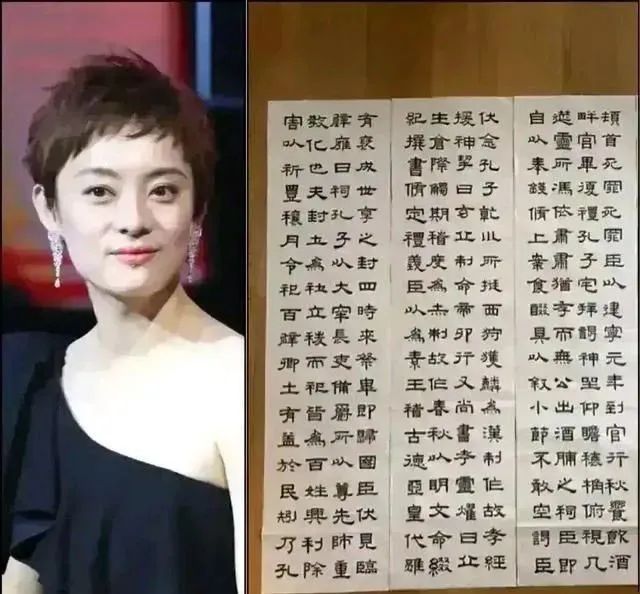 頓首死罪死罪臣以建寧元年到官行秋饗飲酒
畔官畢復禮孔子宅拜謁神坐仰瞻榱桷俯視几
筵靈所馮依肅肅猶存而無公出酒脯之祠臣即
自以奉錢脩上案食醊具以敘小節不敢空謁臣
伏念孔子乾坤所挺西狩獲麟為漢制作故孝經
援神挈曰玄丘制命帝卯行又尚書考靈燿曰丘
生倉際觸期稽度為赤制故作春秋以明文命綴
紀撰書脩定禮義臣以為素王稽古德亞皇代雖
有褒成世享之封四時來祭畢即歸國臣伏見臨
辟雍日祠孔子以大宰長吏備爵所以尊先師重
教化也夫封土為社立稷而祀皆為百姓興利除
害以祈豐穰月令祀百辟卿士有益於民矧乃孔